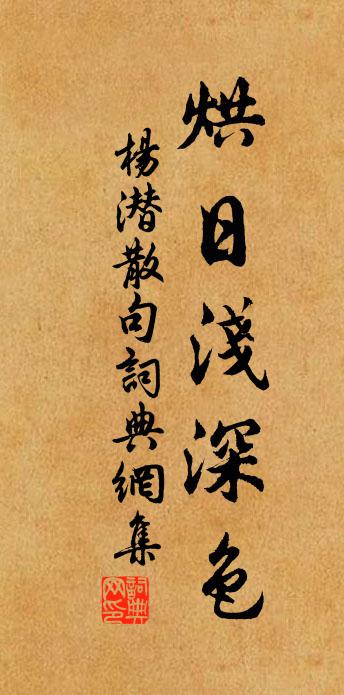 烘日淺深色
楊潛散句詞典網集
詞典網印